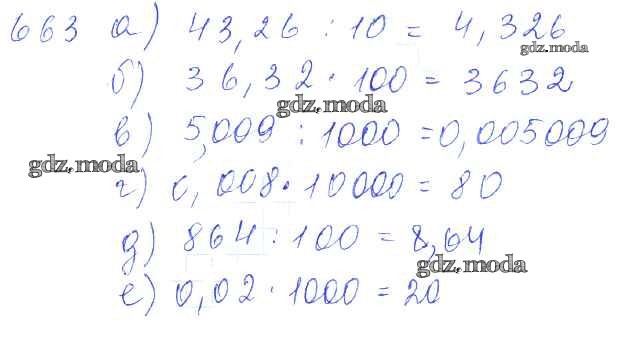 663 а) 43,26 : 10 = 4,326
gdz.moda
б) 36,32 · 100 = 3632
gdz.moda
в) 5,009 : 1000 = 0,005009
gdz.moda
г) 0,008 · 10000 = 80
д) 864 : 100 = 8,64
gdz.moda
е) 0,02 · 1000 = 20